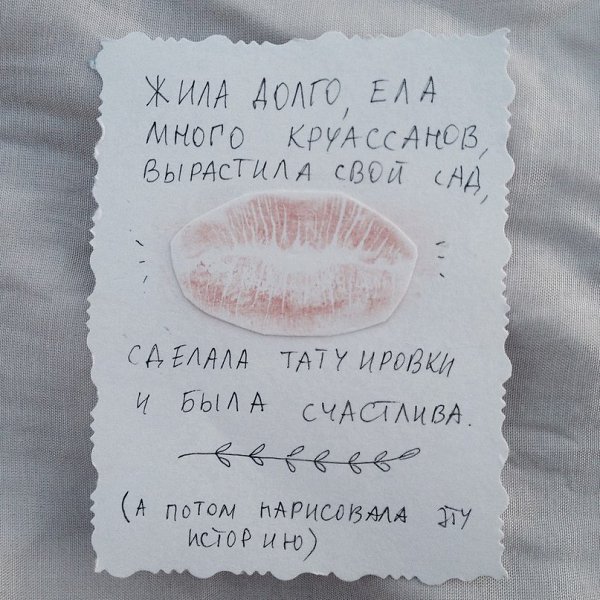 ЖИЛА ДОЛГО, ЕЛА
МНОГО КРУАССАНОВ,
ВЫРАСТИЛА СВОЙ САД,
СДЕЛАЛА ТАТУИРОВКИ
И БЫЛА СЧАСТЛИВА.
(А ПОТОМ НАРИСОВАЛА ЭТУ
ИСТОРИЮ)